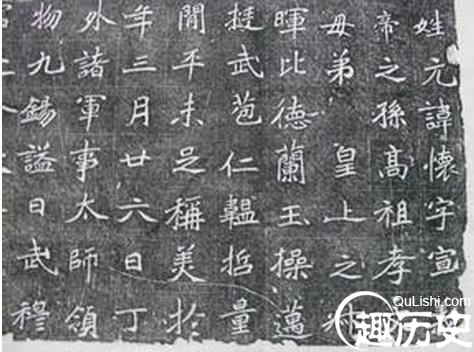 姓元諱懷字宣
帝之孫高祖孝
母弟 皇上之
暉比德蘭玉操邁
挺武苞仁韞哲量
閒平未足稱美於
年三月廿六日丁
外諸軍事太師領
物九錫諡曰武穆
QuLishi.com
趣历史